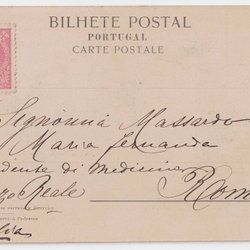 BILHETE POSTAL
PORTUGAL
CARTE POSTALE
Signorina Massardo
Maria Fernanda
dente di Medicina
Reale Rom